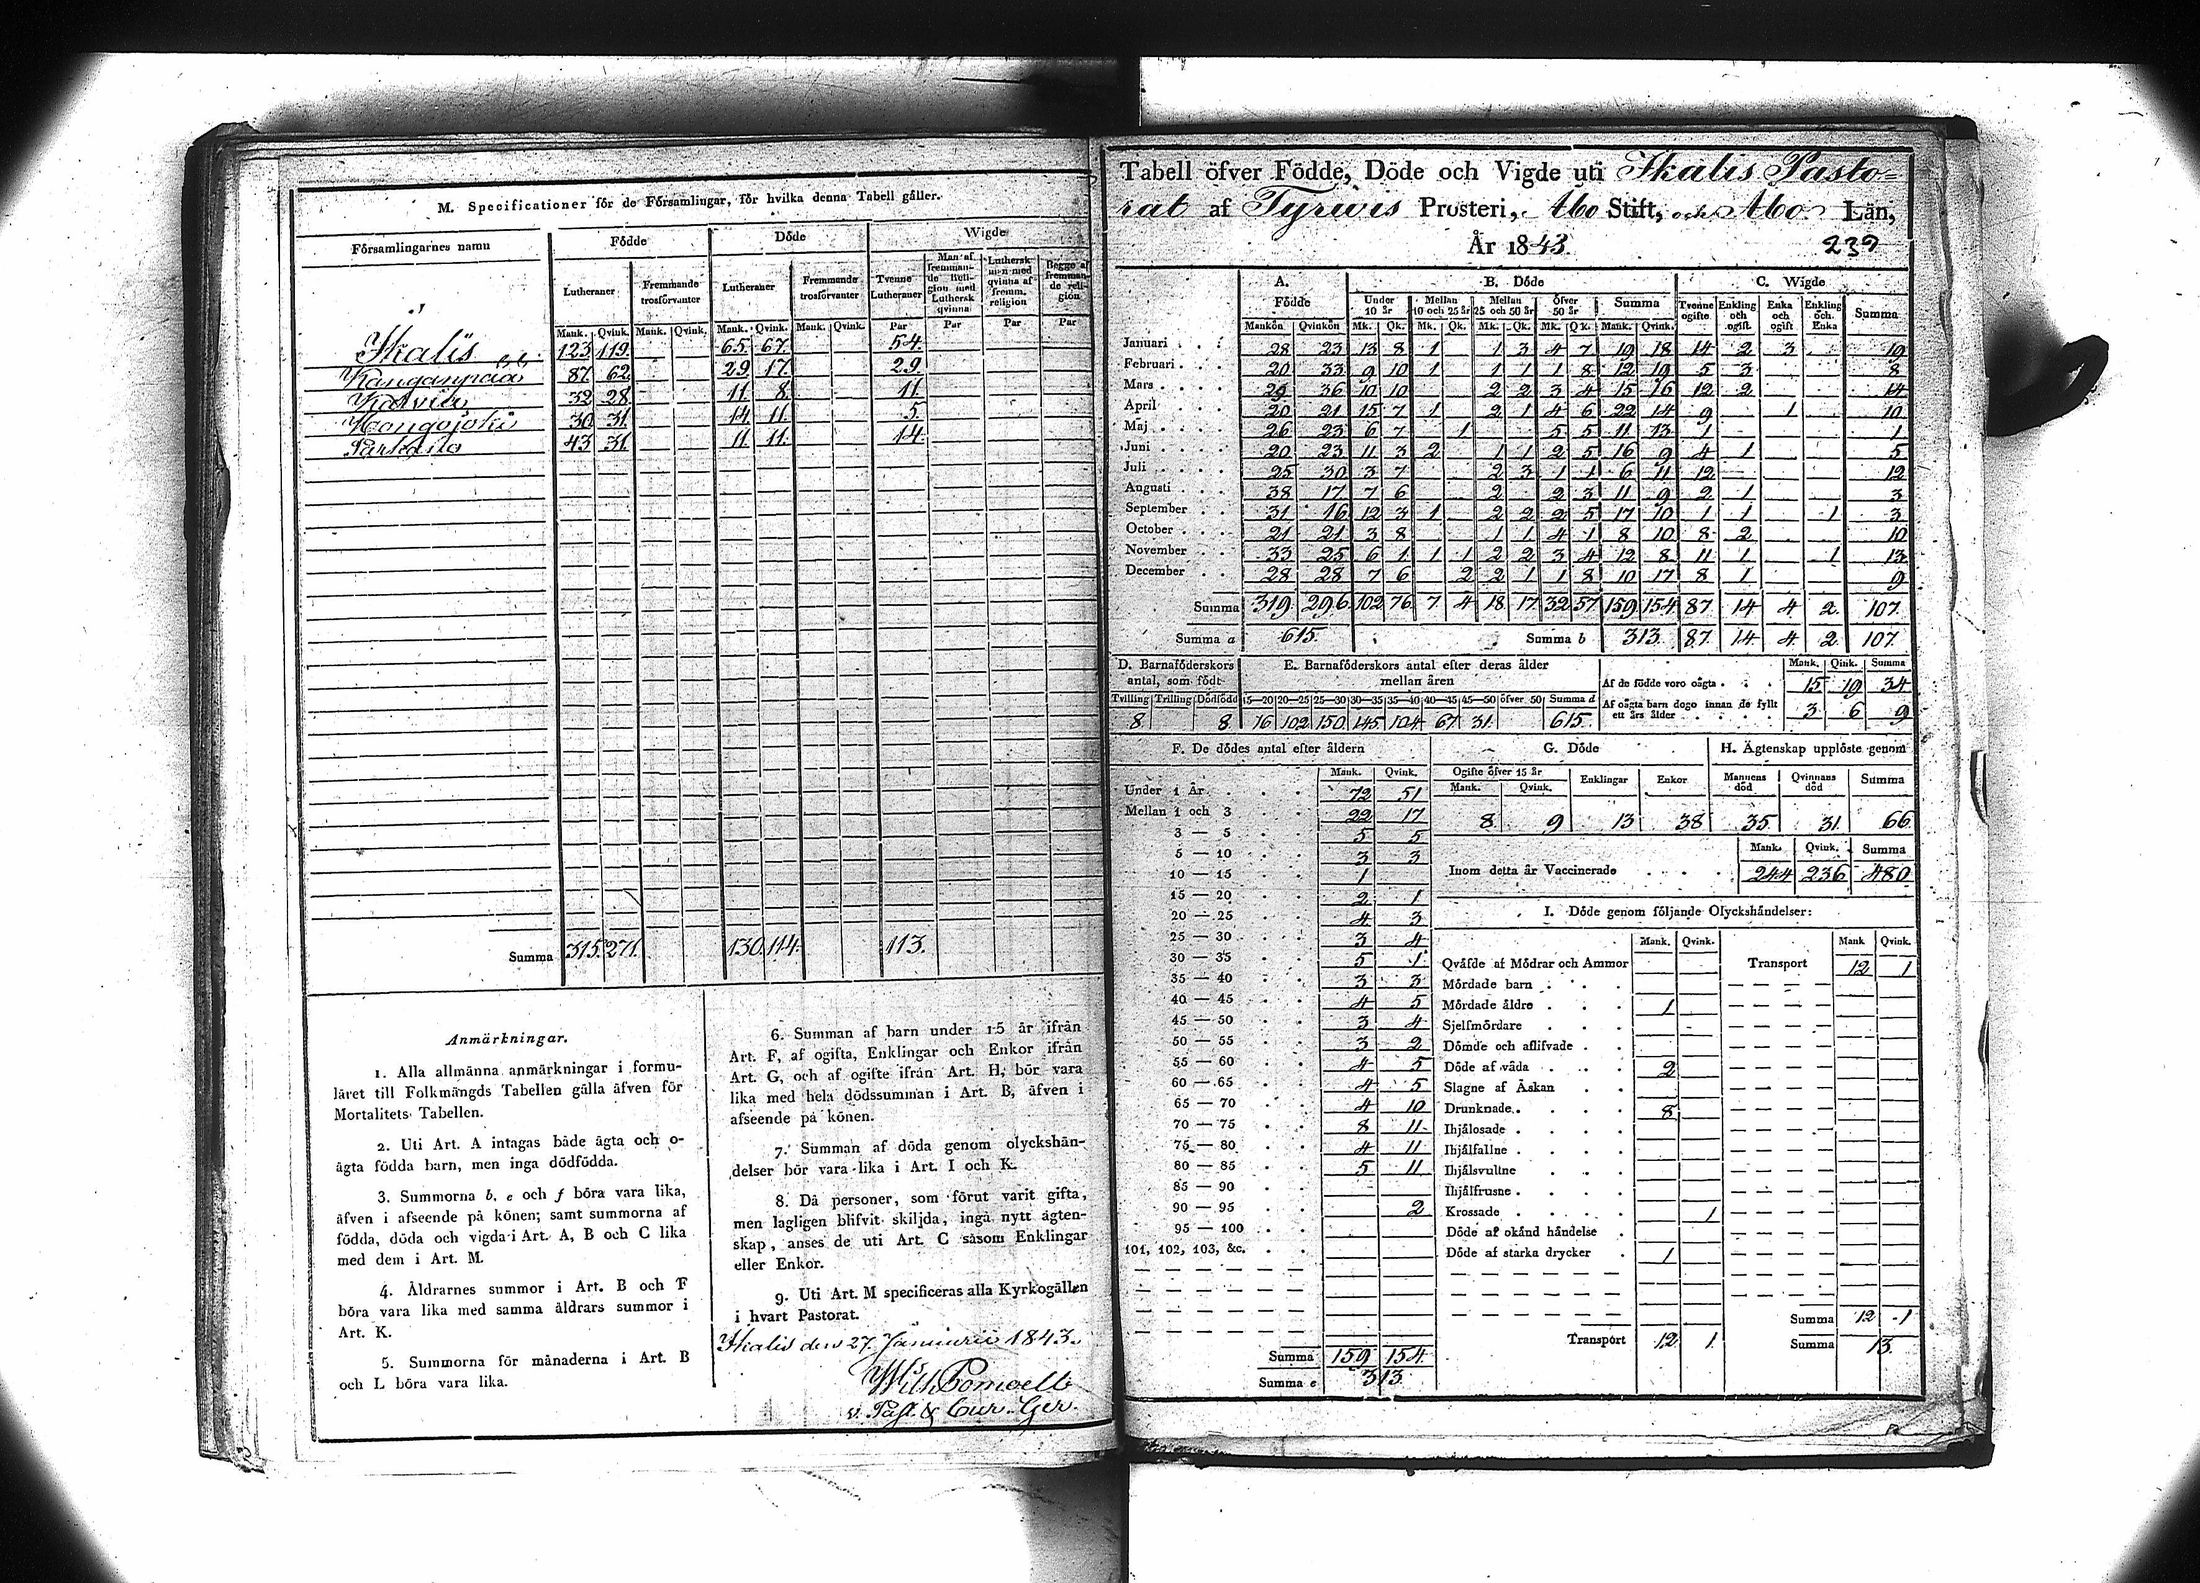 M. Specificationer för de Församlingar, för hvilka denna Tabell gäller.
Församlingarnes namn Födde Döde Wigde
Lutheraner Fremmande trosförvanter Lutheraner Fremmande trosförvanter Tvenne Lutheraner Man af fremmande Religion med Luthersk qvinna Luthersk man med qvinna af fremm. religion Begge af fremmande religion
Mank. Qvink. Mank. Qvink. Mank. Qvink. Mank. Qvink. Par Par Par Par
Ikalis 123 119. 65. 67. 54.
Kanganpää 87. 62 29. 17. 29.
32 28 11. 8. 11.
30 31. 14. 11. 5.
43 31. 11. 11. 14.
Summa 315. 271. 130. 114. 113.
Anmärkningar.
1. Alla allmänna anmärkningar i formu-
läret till Folkmängds Tabellen gälla äfven för
Mortalitets Tabellen.
2. Uti Art. A intagas både ägta och o-
ägta födda barn, men inga dödfödda.
3. Summorna b, e och f böra vara lika,
äfven i afseende på könen; samt summorna af
födda, döda och vigda i Art. A, B och C lika
med dem i Art. M.
4. Åldrarnes summor i Art. B och F
böra vara lika med samma åldrars summor i
Art. K.
5. Summorna för månaderna i Art. B
och L böra vara lika.
6. Summan af barn under 15 år ifrån
Art. F, af ogifta, Enklingar och Enkor ifrån
Art. G, och af ogifte ifrån Art. H, bör vara
lika med hela dödssumman i Art. B, äfven i
afseende på könen.
7. Summan af döda genom olyckshän-
delser bör vara lika i Art. I och K.
8. Då personer, som förut varit gifta,
men lagligen blifvit skiljda, ingå nytt ägten-
skap, anses de uti Art. C såsom Enklingar
eller Enkor.
9. Uti Art. M specificeras alla Kyrkogällen
i hvart Pastorat.
Ikalis den 27. Januarii 1843.
v. Past. & Cur. Ger.
Tabell öfver Födde, Döde och Vigde uti Ikalis Pasto=
rat af Tyrvis Prosteri, Åbo Stift, och Åbo Län,
År 1843. 239
A. Födde B. Döde C. Wigde
Under 10 år Mellan 10 och 25 år Mellan 25 och 50 år Öfver 50 år Summa Tvenne ogifte Enkling och ogift Enka och ogift Enkling och Enka Summa
Mankön Qvinkön Mk. Qk. Mk. Qk. Mk. Qk. Mk. Qk. Mank. Qvink.
Januari 28 23 13 8 1 1 3 4 7 19 18 14 2 3 19
Februari 20 33 9 10 1 1 1 1 8 12 19 5 3 8
Mars 29 36 10 10 2 2 3 4 15 16 12 2 14
April 20 21 15 7 1 2 1 4 6 22 14 9 1 10
Maj 26 23 6 7 1 5 5 11 13 1 1
Juni 20 23 11 3 2 1 1 2 5 16 9 4 1 5
Juli 25 30 3 7 2 3 1 1 6 11 12 12
Augusti 38 17 7 6 2 2 3 11 9 2 1 3
September 31 16 12 3 1 2 2 2 5 17 10 1 1 1 3
October 21 21 3 8 1 1 4 1 8 10 8 2 10
November 33 25 6 1 1 1 2 2 3 4 12 8 11 1 1 13
December 28 28 7 6 2 2 1 1 8 10 17 8 1 9
Summa 319 296 102 76 7 4 18 17 32 57 159 154 87 14 4 2 107
Summa a 615. Summa b 313. 87 14 4 2 107
D. Barnaföderskors antal, som födt E. Barnaföderskors antal efter deras ålder mellan åren Mank. Qink. Summa
Af de födde voro oägta 15 19 34
Tvilling Trilling Dödfödd 15—20 20—25 25—30 30—35 35—40 40—45 45—50 öfver 50 Summa d
Af oägta barn dogo innan de fyllt ett års ålder 3 6 9
8 8 16 102 150 145 104 67 31 615.
F. De dödes antal efter åldern
Mank. Qvink.
Under 1 År 72 51
Mellan 1 och 3 22 17
3 — 5 5 5
5 — 10 3 3
10 — 15 1
15 — 20 2 1
20 — 25 4 3
25 — 30 3 4
30 — 35 5 1
35 — 40 3 3
40 — 45 4 5
45 — 50 3 4
50 — 55 3 2
55 — 60 4 5
60 — 65 4 5
65 — 70 4 10
70 — 75 8 11
75 — 80 4 11
80 — 85 5 11
85 — 90
90 — 95 2
95 — 100
101, 102, 103, &c.
Summa 159 154
Summa e 313
G. Döde H. Ägtenskap upplöste genom
Ogifte öfver 15 år Enklingar Enkor Mannens död Qvinnans död Summa
Mank. Qvink.
8 9 13 38 35 31 66
Mank. Qvink. Summa
Inom detta år Vaccinerade 244 236 480
I. Döde genom följande Olyckshändelser:
Mank. Qvink. Mank Qvink.
Qväfde af Mödrar och Ammor Transport 12 1
Mördade barn
Mördade äldre 1
Sjelfmördare
Dömde och aflifvade
Döde af våda 2
Slagne af Åskan
Drunknade 8
Ihjälosade
Ihjälfallne
Ihjälsvultne
Ihjälfrusne
Krossade 1
Döde af okänd händelse
Döde af starka drycker 1
Summa 12 1
Transport 12 1 Summa 13